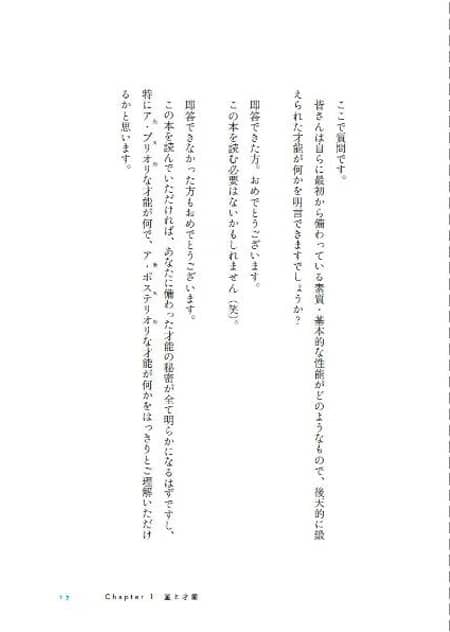 ここで質問です。
皆さんは自らに最初から備わっている素質・基本的な性能がどのようなもので、後天的に鍛
えられた才能が何かを明言できますでしょうか？
即答できた方。おめでとうございます。
この本を読む必要はないかもしれません（笑）。
即答できなかった方もおめでとうございます。
この本を読んでいただければ、あなたに備わった才能の秘密が全て明らかになるはずですし、
特にア・プリオリな才能が何で、ア・ポステリオリな才能が何かをはっきりとご理解いただけ
るかと思います。
17 Chapter 1 と才能